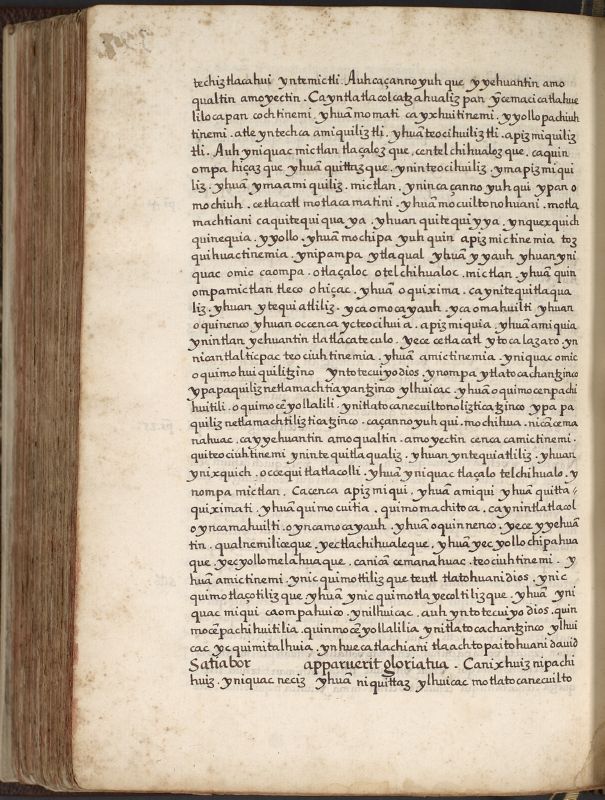 techiztlacahui yntemictli. Auh caçanno yuh que y yehuantin amo
qualtin amo yectin. Ca yn tlatlacolcatzahualiz pan yçemaci catlahue
lilocapan cochtinemi yhuā momati ca yxhuitinemi. y yollo pachiuh
tinemi. atle yntechca amiquiliztli. yhuā teocihuiliztli. apizmiquiliz
tli. Auh yniquac mictlan tlaçalozque, centelchihualozque. caquin
ompa hiçazque yhuā quittazque. yninteocihuiliz ymapizmiqui
liz. yhuā ymaamiquiliz. mictlan. ynin caçanno yuhqui ypan o
mochiuh. ce tlacatl motlacamatini. yhuā mocuiltonohuani. motla
machtiani ca quitequiqua ya. yhuan quitequi y ya. ynquexquich
quinequia. y yollo. yhuā mochipa yuhquin apizmictinemia toz
quihuactinemia. ynipampa ytlaqual yhuā y yauh yhuan yni
quac omic caompa. otlaçaloc otelchihualoc. mictlan. yhuā quin
ompa mictlan tleco ohiçac. yhuā oquixima. ca ynitequitlaqua
liz. yhuan ytequiatliliz. yca omoçayauh. yca omahuilti yhuan
oquinenco yhuan occenca yc teocihuia. apizmiquia. yhuā amiquia
ynintlan yehuantin tlatlacateculo. yece ce tlacatl ytoca lazaro. yn
nican tlalticpac teociuhtinemia. yhuā amictinemia. yniquac omic
oquimohuiquilitzino yn totecuiyo dios. ynompa ytlatocachantzinco
ypapaquiliz netlamachtiayantzinco ylhuicac. yhuā oquimocenpachi
huitili. oquimocēyollalili. ynitlatocanecuiltonoliztica tzinco ypapa
quiliz netlamachtiliztica tzinco. caçanno yuhqui. mochihua. nican cema
nahuac. ca yyehuantin amo qualtin. amo yectin cenca camictinemi.
quiteociuhtinemi ynintequitlaqualiz. yhuan yntequiatliliz. yhuan
ynixquich. occequi tlatlacolli. yhuā yniquac tlaçalo telchihualo. y
nompa mictlan. Ca cenca apizmiqui. yhuā amiqui yhuā quitta=
quiximati. yhuā quimocuitia. quimomachitoca. ca ynintlatlacol
oyncamahuilti. oyncamocayauh. yhuā oquinnenco. yece y yehuā
tin. qualnemiliceque. yectlachihualeque. yhuā yecyollochipahua
que. yecyollomelahuaque. canicā cemanahuac. teociuhtinemi. y
huā amictinemi. ynic quimottiliz que teutl tlatohuani dios. ynic
quimotlaçotilizque yhuā ynic quimotlayecoltilizque. yhuā yni
quac miqui caompahuico. ynilhuicac. auh yn totecuiyo dios. quin
mocēpachihuitilia. quinmocēyollalilia ynitlatocachantzinco ylhui
cac yc quimitalhuia. ynhuecatlachiani tlaachtopaitohuani dauid
Satiabor apparuerit gloria tua. Canixhuiz nipachi
huiz. yniquac neciz yhuā niquittaz ylhuicac motlatocanecuilto